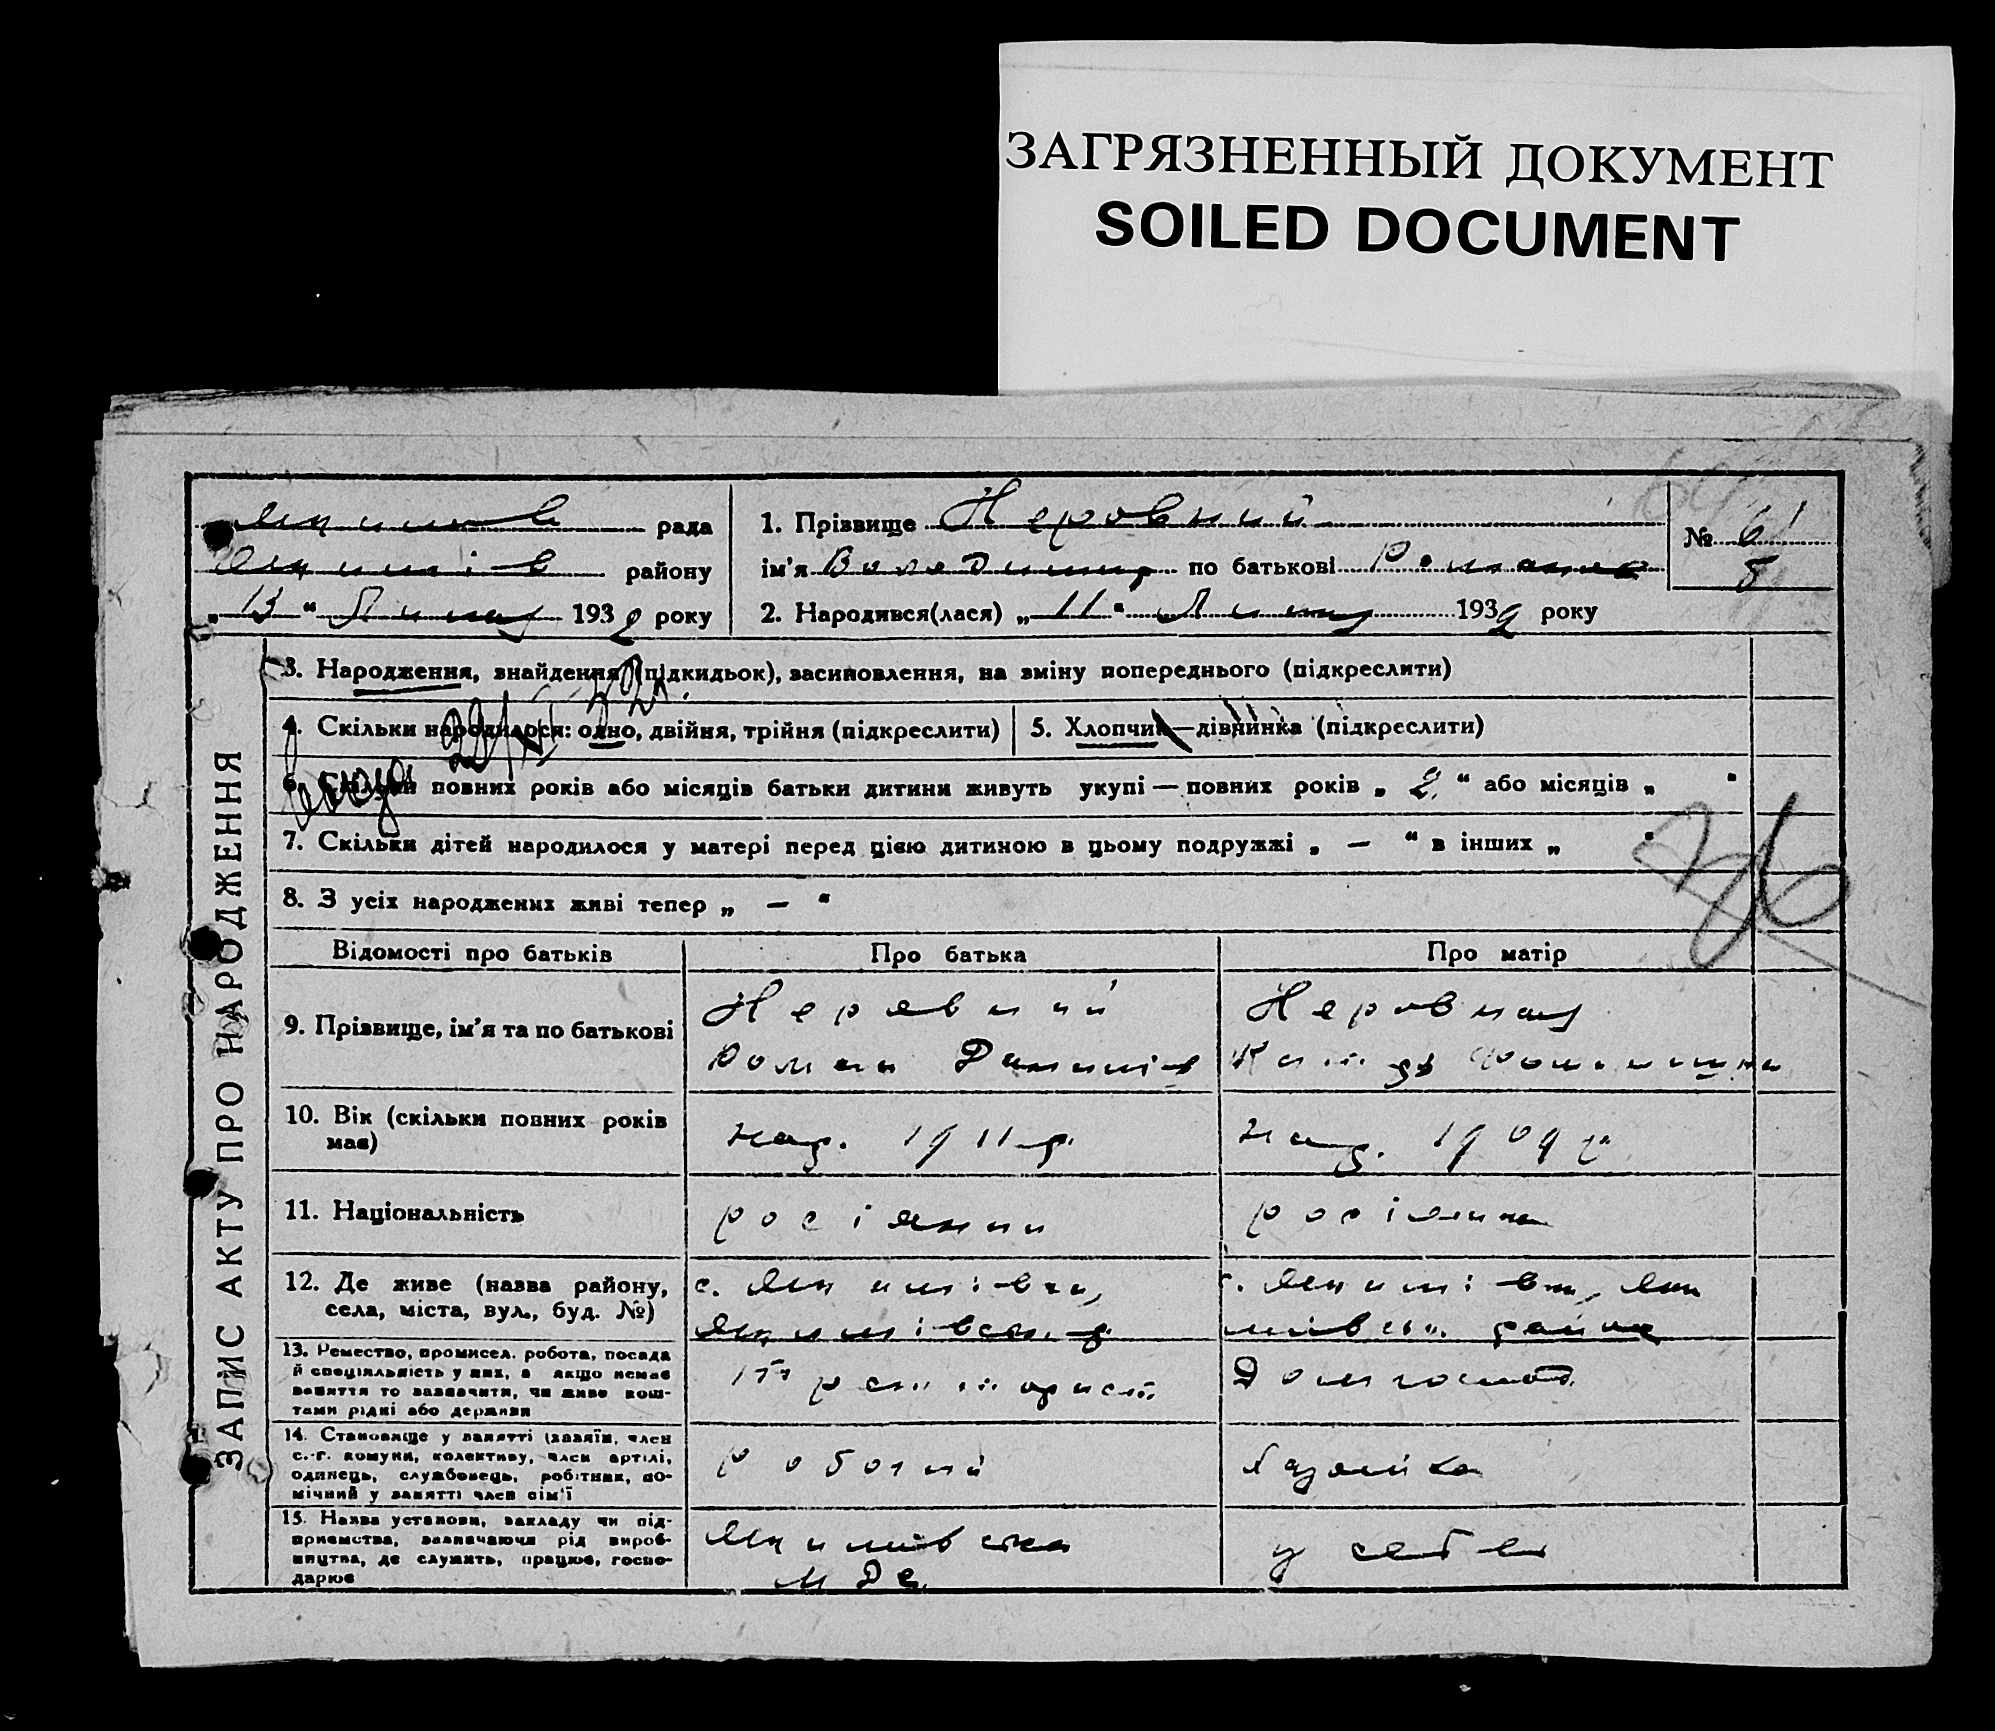 ЗАГРЯЗНЕННЫЙ ДОКУМЕНТ
SOILED DOCUMENT
рада
району
„13“ Липня 1932 року
1. Прізвище Неровний
ім'я Володимир по батькові Романов
2. Народився(лася) „11“ Липня 1932 року
№ 61
8
ЗАПИС АКТУ ПРО НАРОДЖЕННЯ
3. Народження, знайдення (підкидьок), засиновлення, на зміну попереднього (підкреслити)
4. Скільки народилося: одно, двійня, трійня (підкреслити)
5. Хлопчик—дівчинка (підкреслити)
6. Скільки повних років або місяців батьки дитини живуть укупі — повних років „2“ або місяців „ “
7. Скільки дітей народилося у матері перед цією дитиною в цьому подружжі „ — “ в інших „ “
8. З усіх народжених живі тепер „ — “
Відомості про батьків
Про батька
Про матір
9. Прізвище, ім'я та по батькові
Неровний
Роман
Неровная
10. Вік (скільки повних років має)
нар. 1911 р.
нар. 1909 р.
11. Національність
росіянин
росіянка
12. Де живе (назва району,
села, міста, вул., буд. №)
с.
с.
району
13. Ремество, промисел. робота, посада
й спеціяльність у них, а якщо немає
заняття то зазначити, чи живе кош-
тами рідні або держави
Тракторист
Домгосп.
14. Становище у занятті (хазяїн, член
с.-г. комуни, колективу, член артілі,
одинець, службовець, робітник, по-
мічний у занятті член сім'ї
робочий
Хазяйка
15. Назва установи, закладу чи під-
приємства, зазначаючи рід вироб-
ництва, де служить, працює, госпо-
дарює
у себе